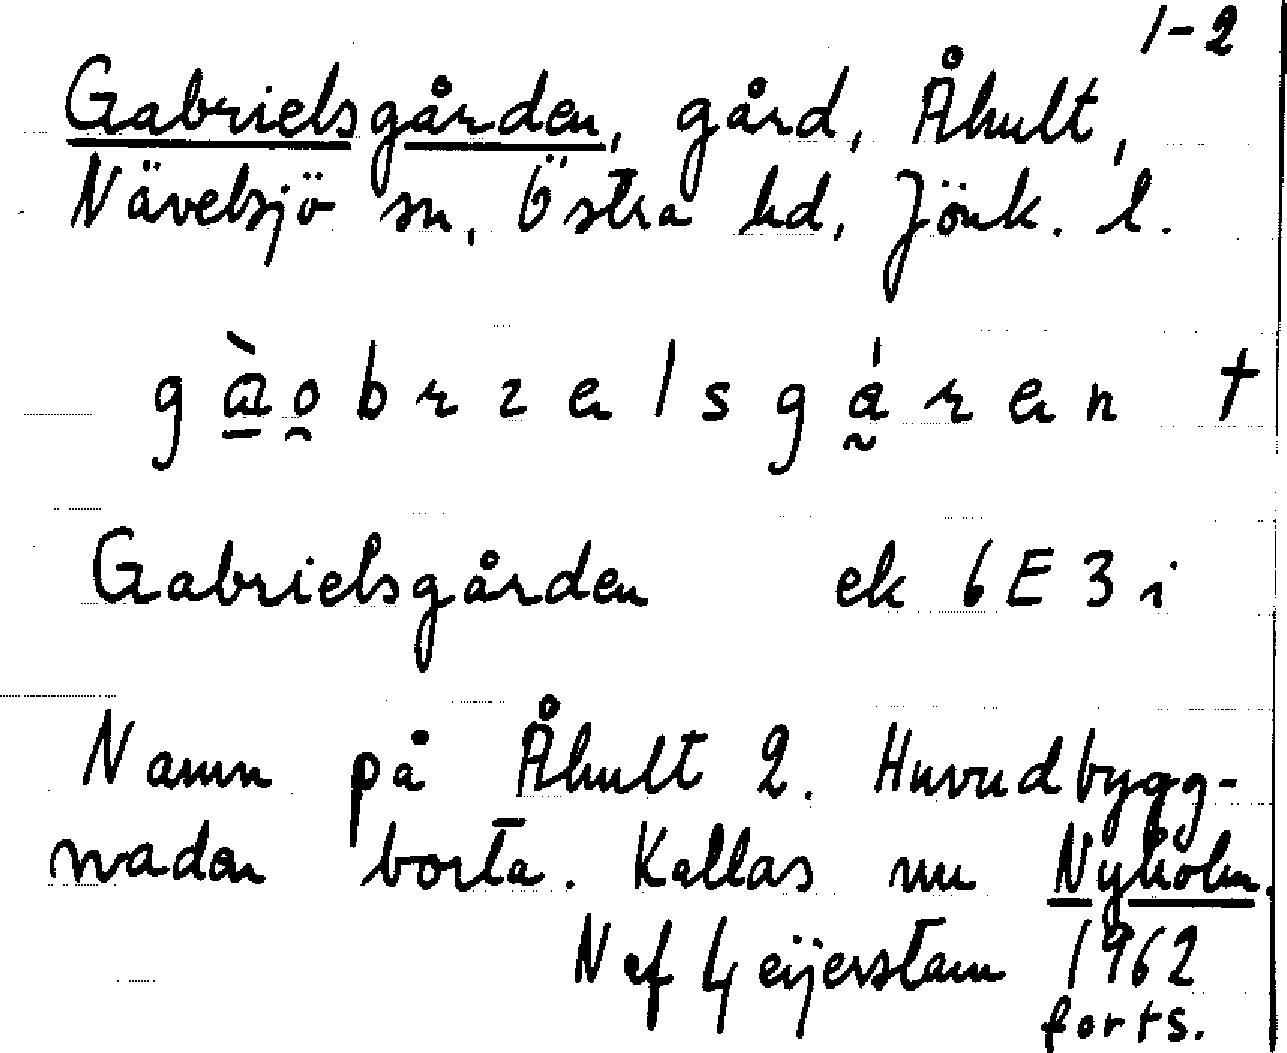 1-2
Gabrielsgården, gård, Åhult,
Nävelsjö sn, Östra hd, Jönk. l.
gàobrɪelsgáren †
Gabrielsgården ek 6E3i
Namn på Åhult 2. Huvudbygg-
naden borta. Kallas nu Nyholm.
N af Geijerstam 1962
forts.